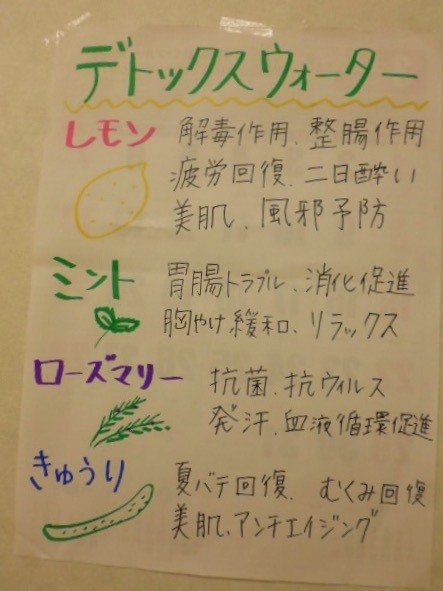 デトックスウォーター
レモン 解毒作用、整腸作用
疲労回復、二日酔い
美肌、風邪予防
ミント 胃腸トラブル、消化促進
胸やけ緩和、リラックス
ローズマリー 抗菌、抗ウィルス
発汗、血液循環促進
きゅうり 夏バテ回復、むくみ回復
美肌、アンチエイジング